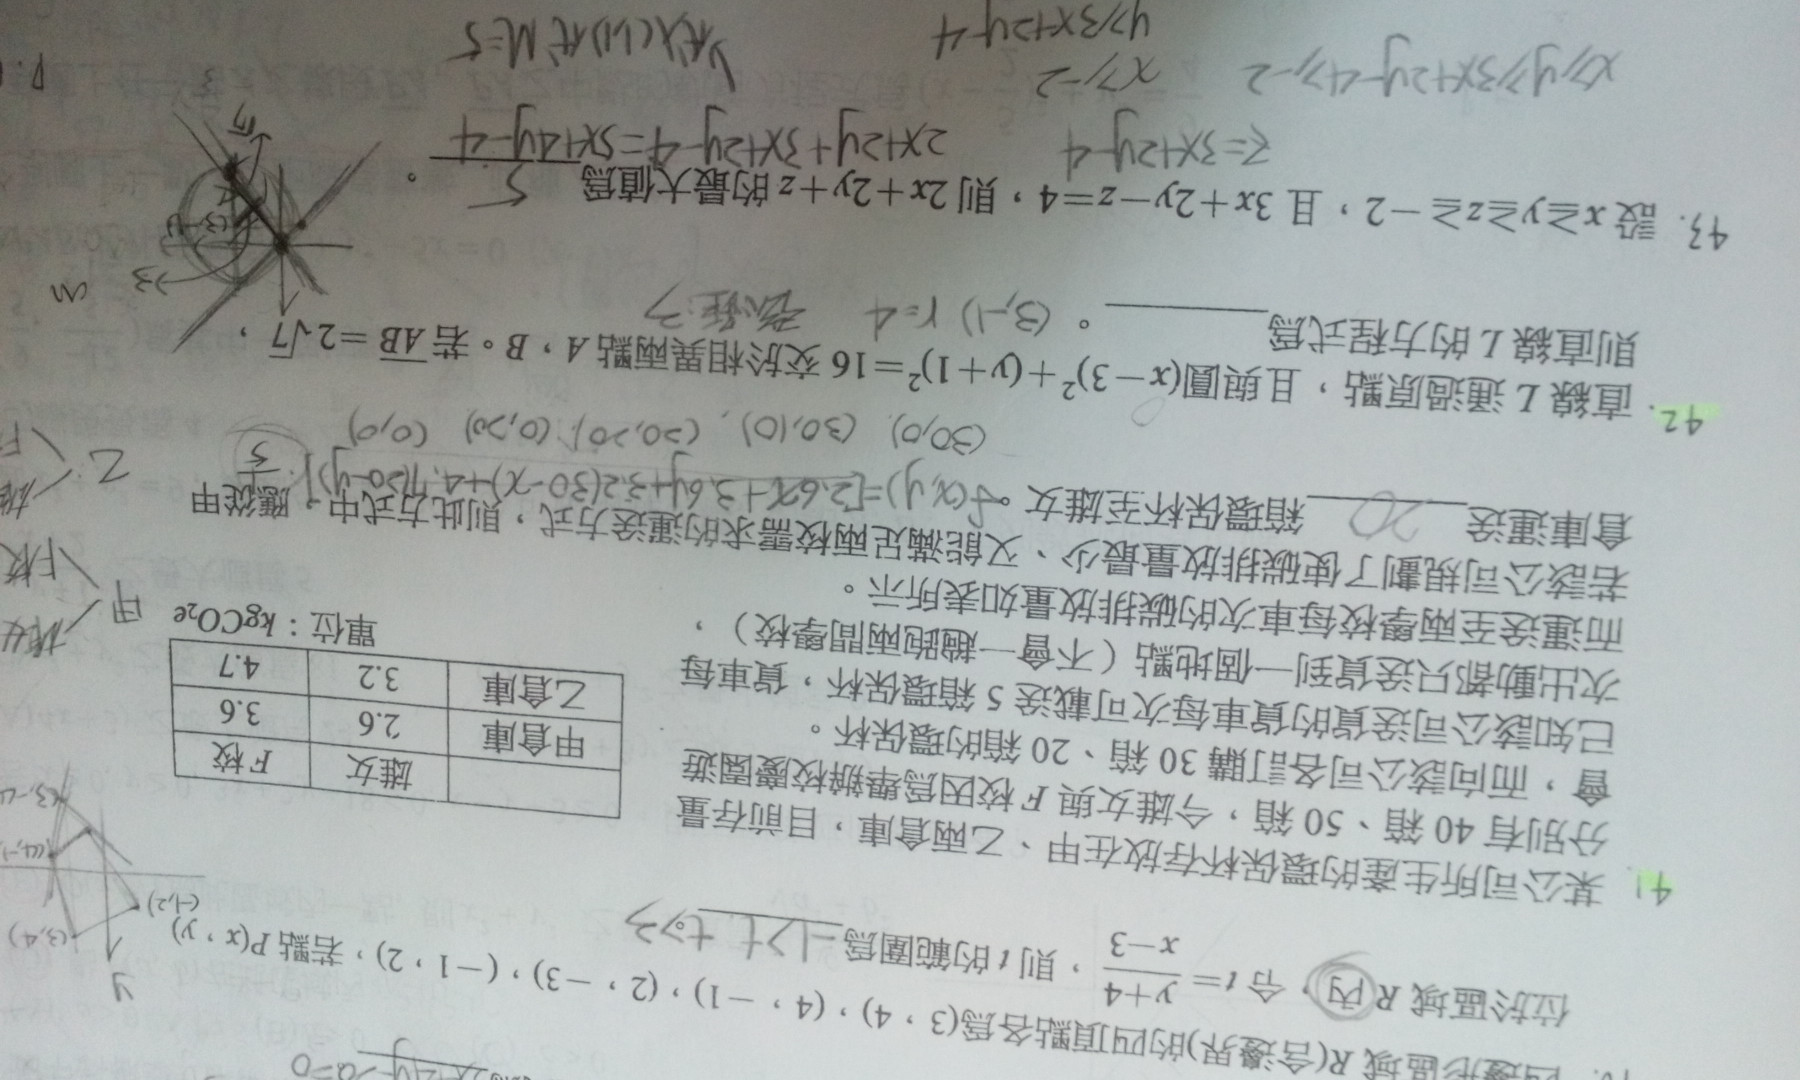 四邊形區域 R(含邊界)的四頂點各為(3,4),(4,-1),(2,-3),(-1,2),若點 P(x,y)
位於區域 R 內,令 t=\frac{y+4}{x-3},則 t 的範圍為
y
(3,4)
(-1,2)
41. 某公司所生產的環保杯存放在甲、乙兩倉庫,目前存量
分別有 40 箱、50 箱,今雄女與 F 校因為舉辦校慶園遊
會,而向該公司各訂購 30 箱、20 箱的環保杯。
已知該公司送貨的貨車每次可載送 5 箱環保杯,貨車每
次出動都只送貨到一個地點(不會一趟跑兩間學校),
而運送至兩學校每車次的碳排放量如表所示。
雄女 F 校
甲倉庫 2.6 3.6
乙倉庫 3.2 4.7
單位:kgCO₂e
若該公司規劃了使碳排放量最少、又能滿足兩校需求的運送方式,則此方式中,應從甲
倉庫運送 20 箱環保杯至雄女。
f(x,y)=[2.6x+3.6y+3.2(30-x)+4.7(20-y)]·\frac{1}{5}
(30,0), (30,10), (20,20), (0,20) (0,0)
甲
雄女
F校
乙
42. 直線 L 通過原點,且與圓(x-3)²+(y+1)²=16 交於相異兩點 A、B。若 AB=2√7,
則直線 L 的方程式為。
(3,-1) r=4
43. 設 x≥y≥z≥-2,且 3x+2y-z=4,則 2x+2y+z 的最大值為 5。
z=3x+2y-4
2x+2y+3x+2y-4=5x+4y-4
x≥y≥3x+2y-4≥-2
x≥-2
y≥3x+2y-4
(1,1) M=5